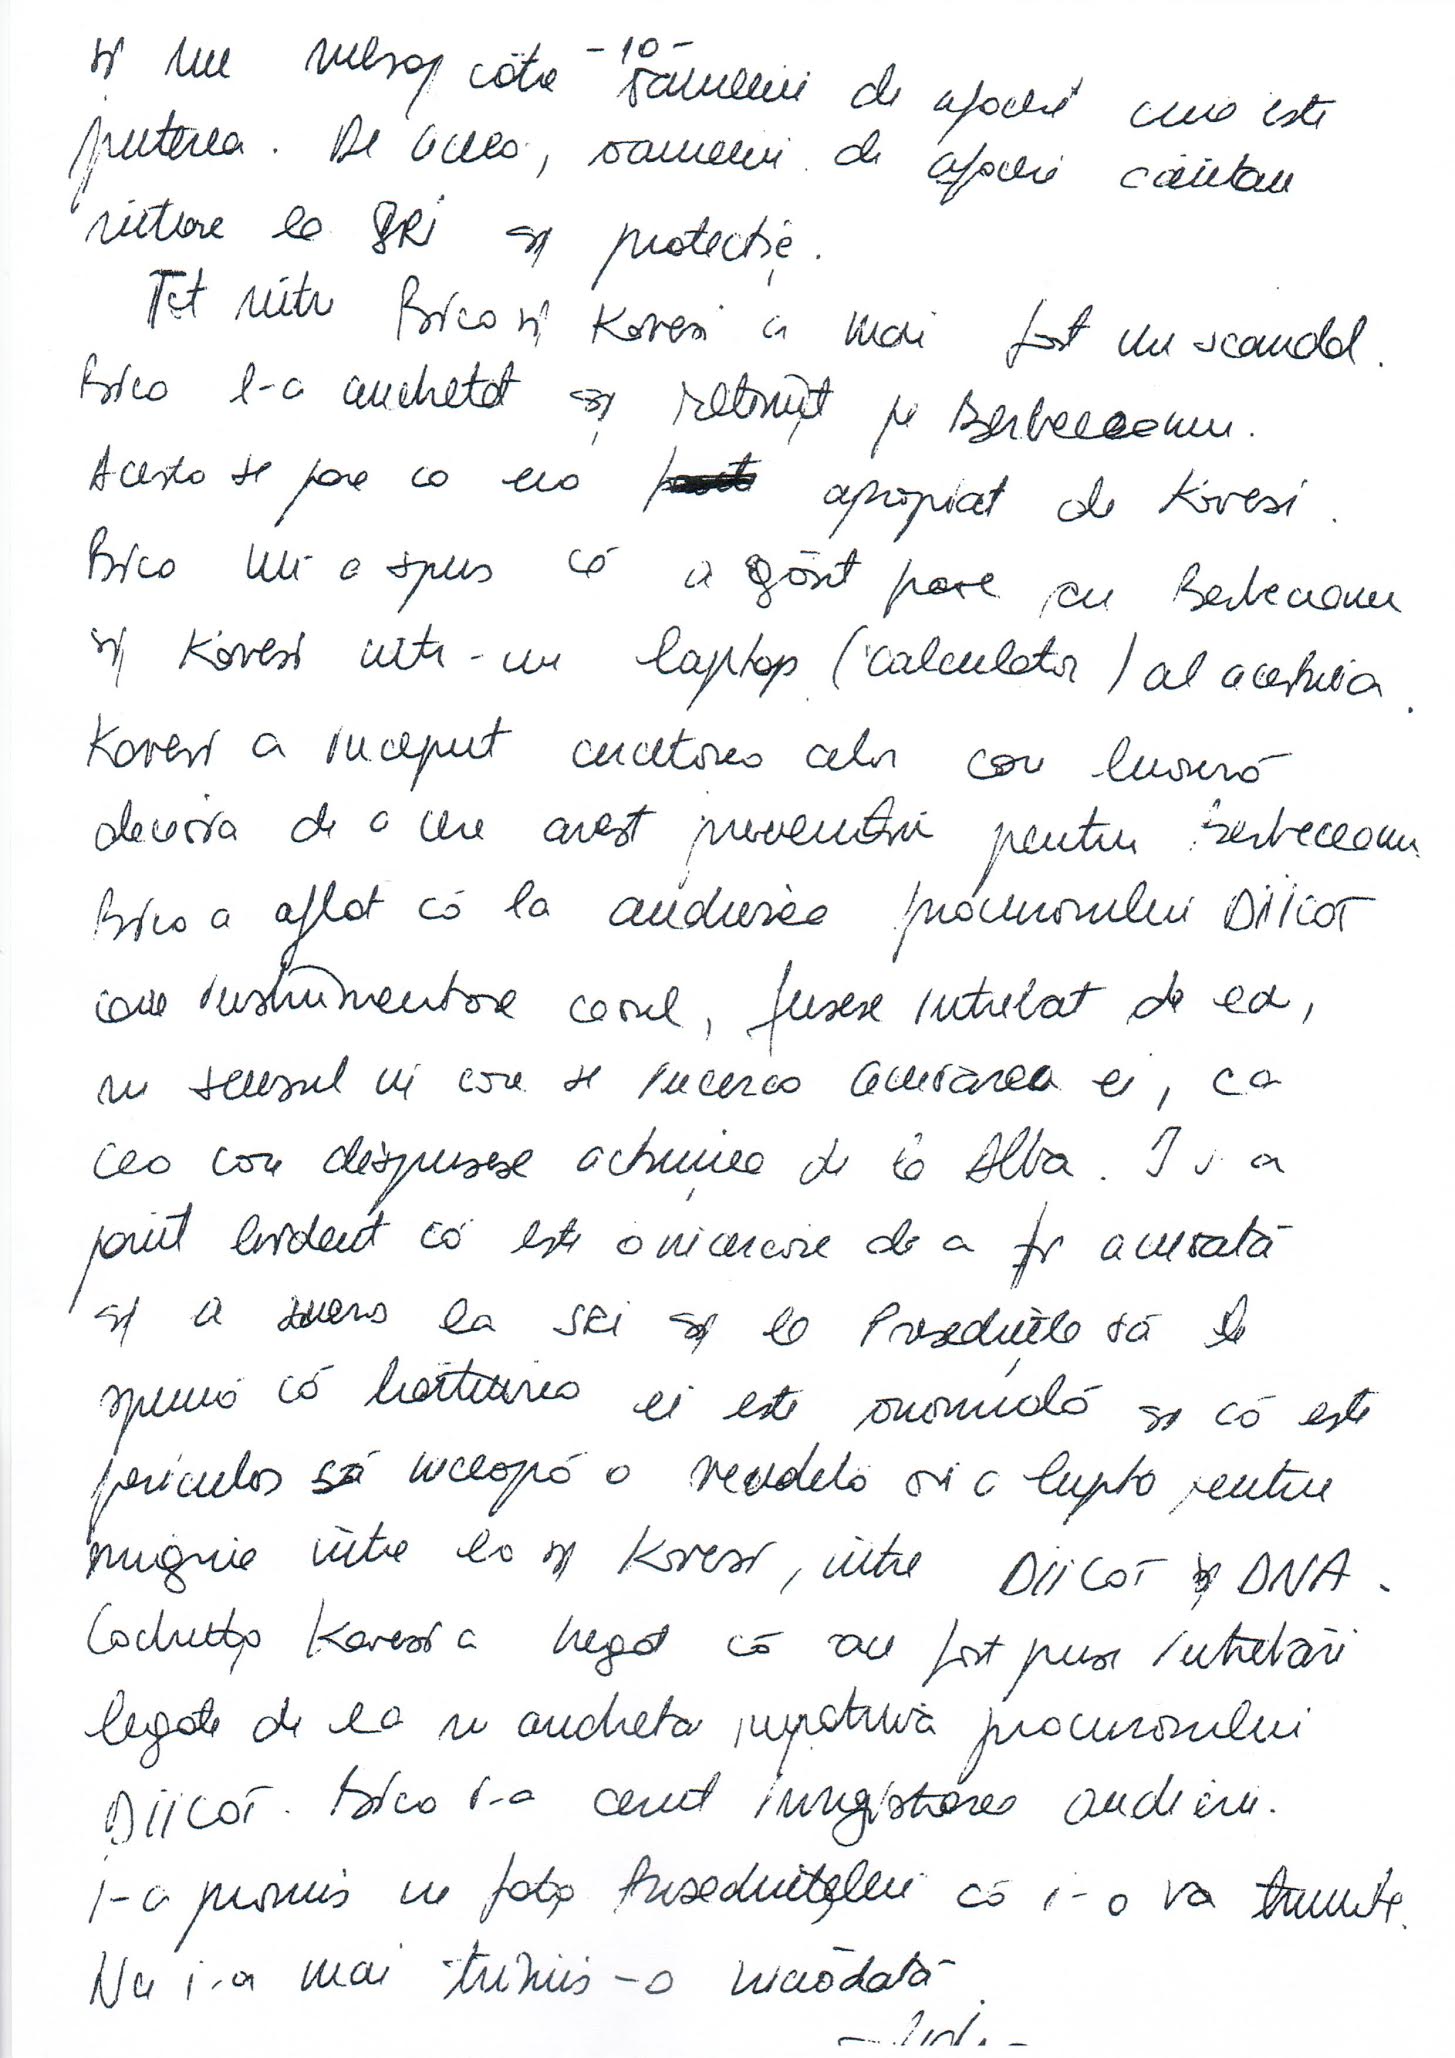 -10-
și un mesaj către oamenii de afaceri cine este
puterea. De aceea, oamenii de afaceri căutau
intrare la SRI și protecție.
Tot între Bica și Kovesi a mai fost un scandal.
Bica l-a anchetat și reținut pe Berbeceanu.
Acesta se pare ca era apropiat de Kovesi.
Bica mi-a spus că a găsit poze cu Berbeceanu
și Kovesi intr-un laptop (calculator) al acestuia.
Kovesi a inceput cercetarea celor care luaseră
decizia de a cere arest preventiv pentru Berbeceanu
Bica a aflat că la audierea procurorului DIICOT
care instrumentase cazul, fusese intrebat de ea,
in sensul in care se incerca acuzarea ei, ca
cea care dispusese acțiunea de la Alba. I s-a
părut evident că este o incercare de a fi acuzată
și a mers la SRI și la Președinte să le
spună că hărțuirea ei este anormală și că este
periculos să inceapă o vendeta ori o lupta pentru
orgolii între ea și Kovesi, între DIICOT și DNA.
Codruța Kovesi a negat că au fost puse intrebări
legate de ea in ancheta impotriva procurorului
DIICOT. Bica i-a cerut inregistrarea audierii.
I-a promis in fața Președintelui că i-o va trimite.
Nu i-a mai trimis-o niciodată